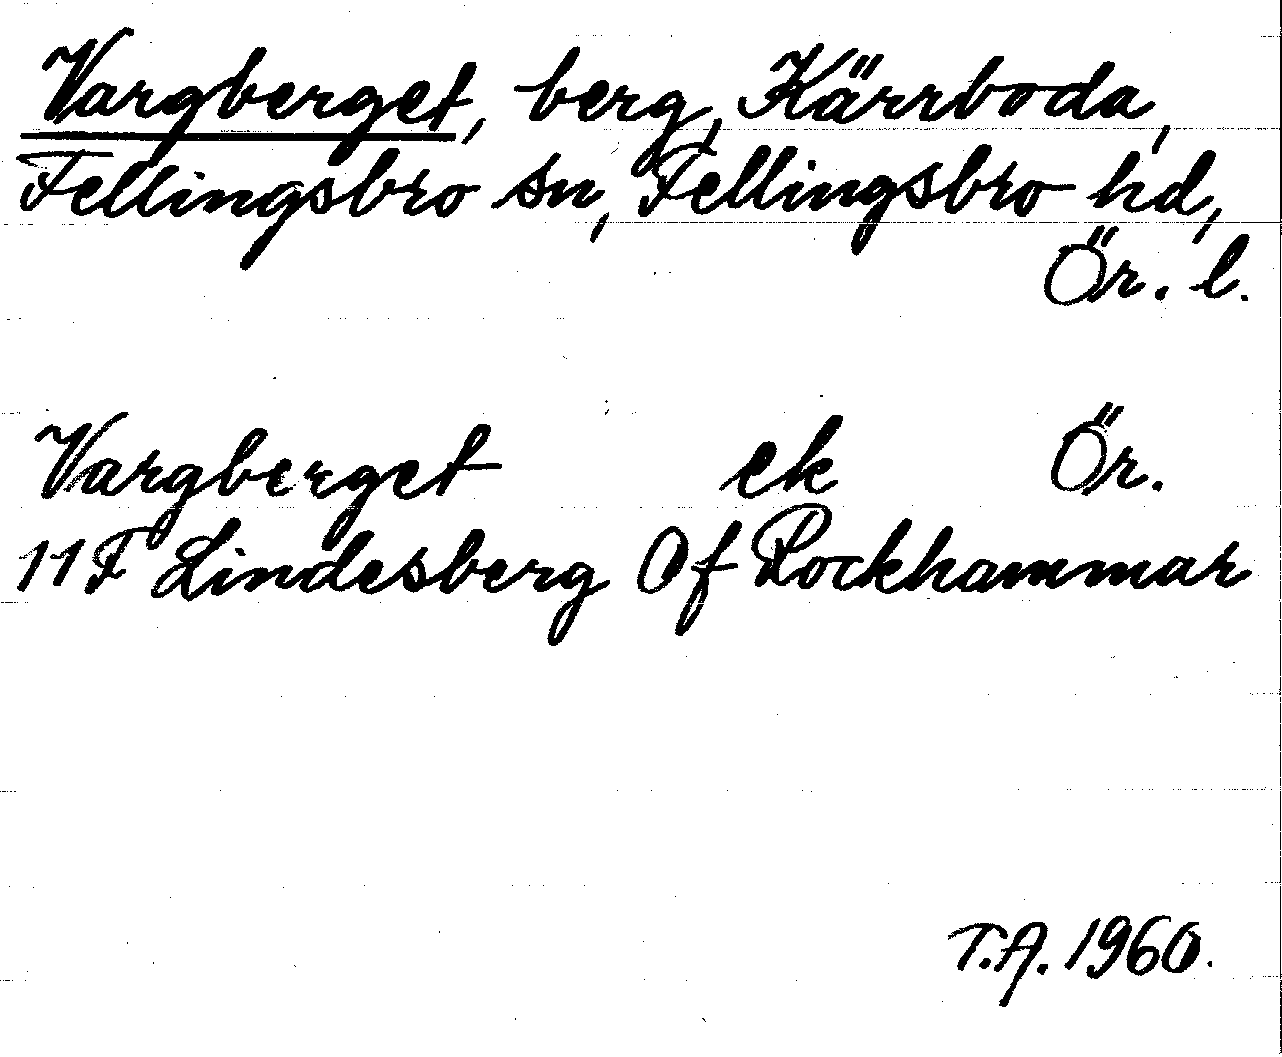 Vargberget, berg, Kärrboda,
Fellingsbro sn, Fellingsbro hd,
Ör. l.
Vargberget ek Ör.
11F Lindesberg Of Rockhammar
T.A. 1960.